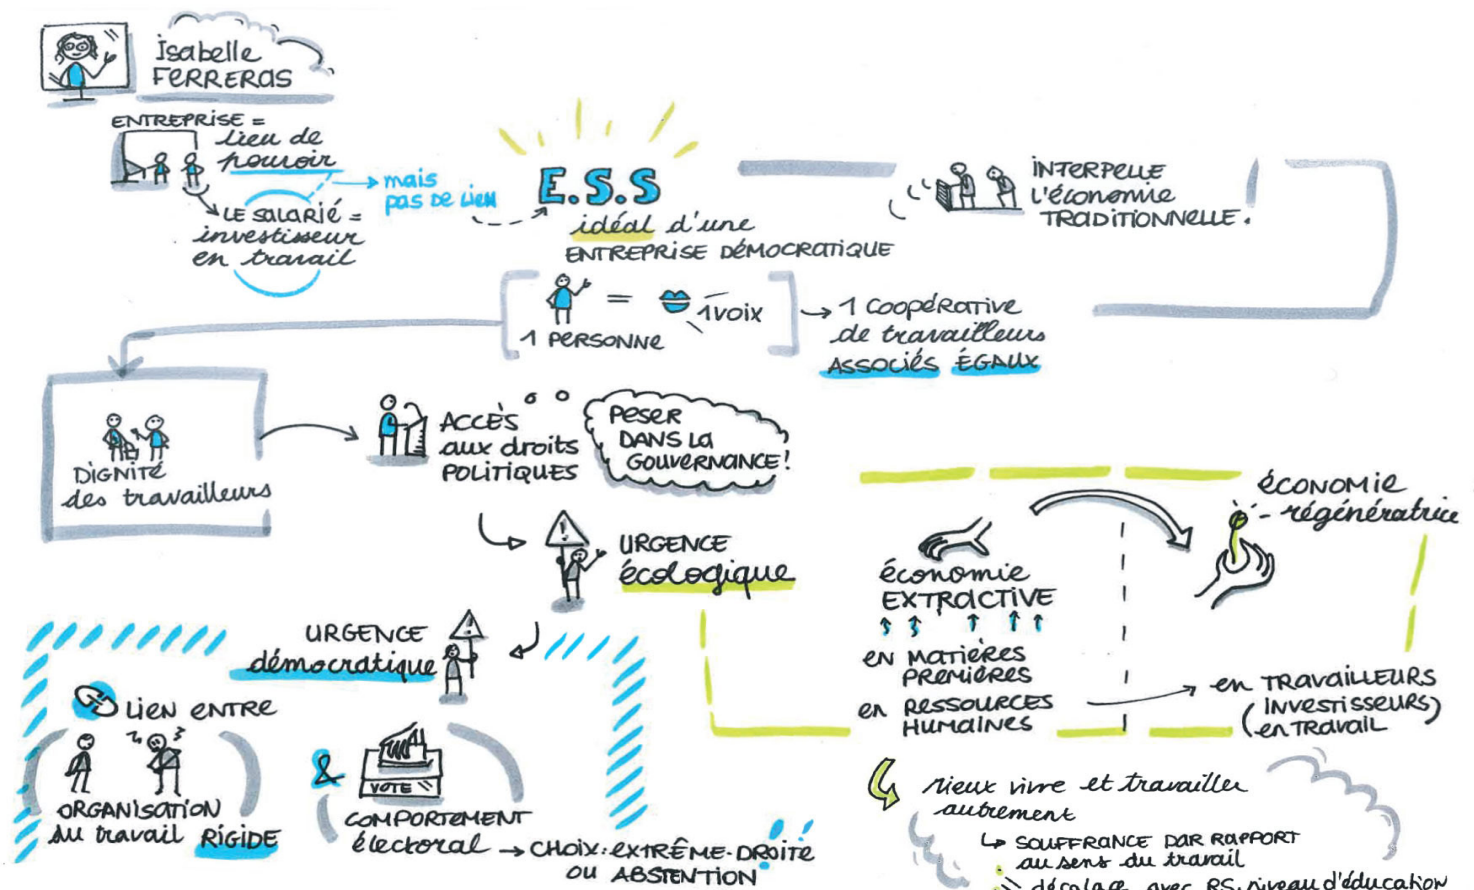 Isabelle
FERRERAS
ENTREPRISE =
lieu de
pouvoir
mais
pas de lien
LE SALARIÉ =
investisseur
en travail
E.S.S
idéal d'une
ENTREPRISE DÉMOCRATIQUE
INTERPELLE
l'économie
TRADITIONNELLE.
1 PERSONNE
=
1 voix
1 COOPÉRATIVE
de travailleurs
ASSOCIÉS ÉGAUX
DIGNITÉ
des travailleurs
ACCÈS
aux droits
POLITIQUES
PESER
DANS LA
GOUVERNANCE!
URGENCE
écologique
URGENCE
démocratique
LIEN ENTRE
ORGANISATION
du travail RIGIDE
&
VOTE
COMPORTEMENT
électoral → CHOIX: EXTRÊME-DROITE
OU ABSTENTION
économie
EXTRACTIVE
en MATIÈRES
PREMIÈRES
en RESSOURCES
HUMAINES
ÉCONOMIE
régénératrice
en TRAVAILLEURS
(INVESTISSEURS)
(en TRAVAIL
vivre et travailler
autrement
SOUFFRANCE PAR RAPPORT
au sens du travail
décalage avec RS, niveau d'éducation